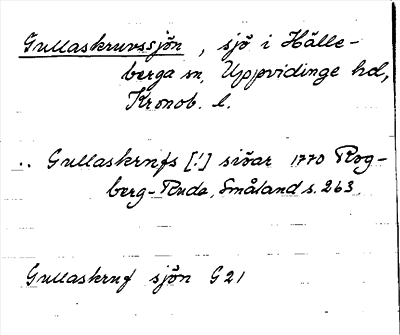 Gullaskruvssjön, sjö i Hälle-
berga sn, Uppvidinge hd,
Kronob. l.
.. Gullaskrufs [!] siöar 1770 Rog-
berg-Ruda, Småland s. 263
Gullaskruf sjön G21